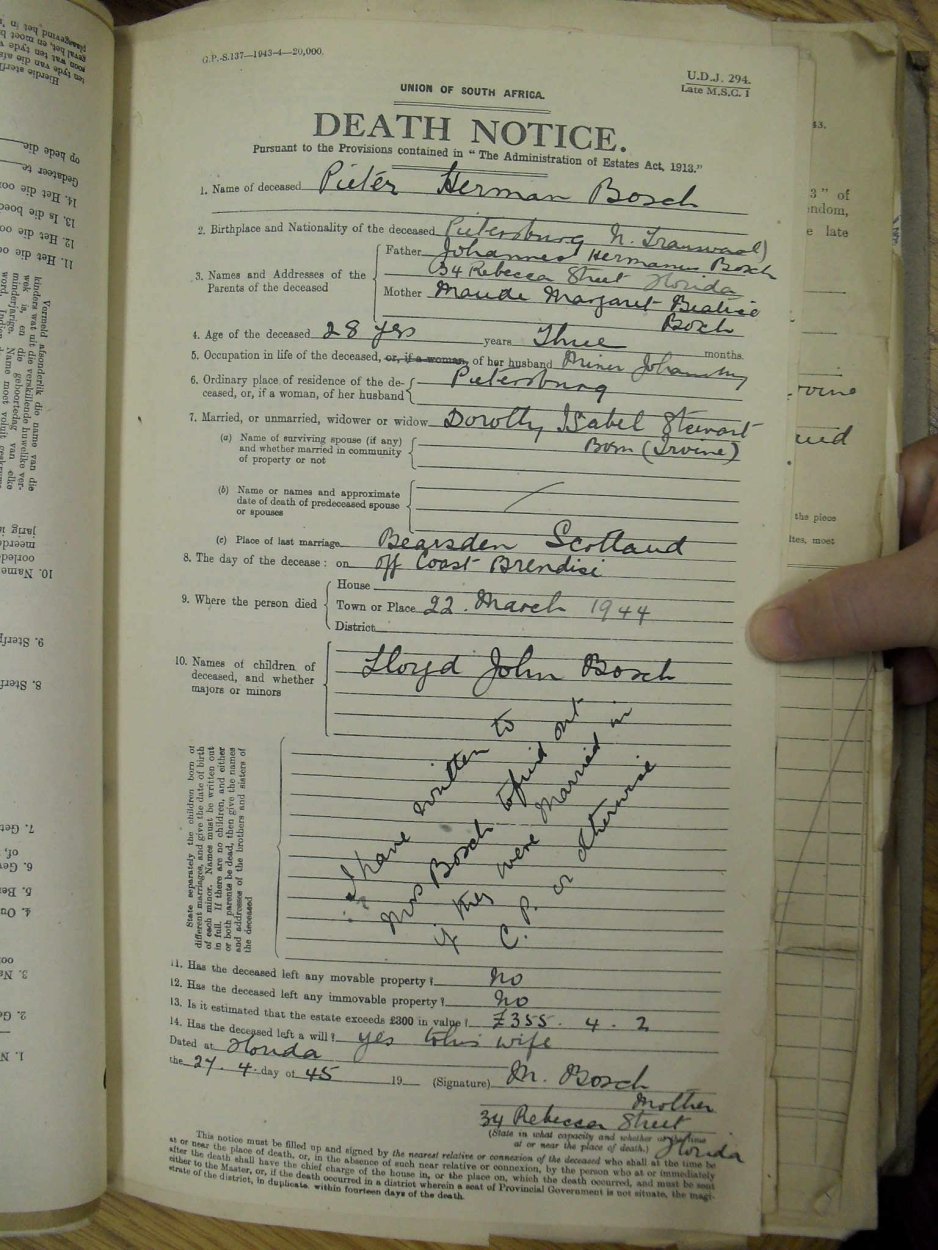 G.P.-S.137—1943-4—20,000.
U.D.J. 294.
Late M.S.C. 1
UNION OF SOUTH AFRICA.
DEATH NOTICE.
Pursuant to the Provisions contained in "The Administration of Estates Act, 1913."
1. Name of deceased Pieter Herman Bosch
2. Birthplace and Nationality of the deceased Pietersburg N. Transvaal)
3. Names and Addresses of the Parents of the deceased
Father Johannes Hermanus Bosch
34 Rebecca Street Florida
Mother Maude Margaret Beatrice
Bosch
4. Age of the deceased 28 yrs years Three months.
5. Occupation in life of the deceased, or, if a woman, of her husband Miner
6. Ordinary place of residence of the de-
ceased, or, if a woman, of her husband Pietersburg
7. Married, or unmarried, widower or widow Dorothy Isabel Stewart
(a) Name of surviving spouse (if any)
and whether married in community
of property or not
Born (Irvine)
(b) Name or names and approximate
date of death of predeceased spouse
or spouses
(c) Place of last marriage Bearsden Scotland
8. The day of the decease: on off Coast Brendisi
9. Where the person died
House
Town or Place 22. March 1944
District
10. Names of children of
deceased, and whether
majors or minors
Lloyd John Bosch
State separately the children born of
different marriages, and give the date of birth
of each minor. Names must be written out
in full. If there are no children, and either
or both parents be dead, then give the names
and addresses of the brothers and sisters of
the deceased
I have written to
Mrs Bosch to find out
if they were Married in
C. P. or otherwise
11. Has the deceased left any movable property? No
12. Has the deceased left any immovable property? No
13. Is it estimated that the estate exceeds £300 in value? £355. 4. 2
14. Has the deceased left a will? yes to his wife
Dated at Florida
the 27. 4. day of 45 19 (Signature) M. Bosch
Mother
34 Rebecca Street
(State in what capacity and whether
at or near the place of death.) Florida
This notice must be filled up and signed by the nearest relative or connexion of the deceased who shall at the time be
at or near the place of death, or, in the absence of such near relative or connexion, by the person who at or immediately
after the death shall have the chief charge of the house in, or the place on, which the death occurred, and must be sent
either to the Master, or, if the death occurred in a district wherein a seat of Provincial Government is not situate, the magi-
strate of the district, in duplicate, within fourteen days of the death.